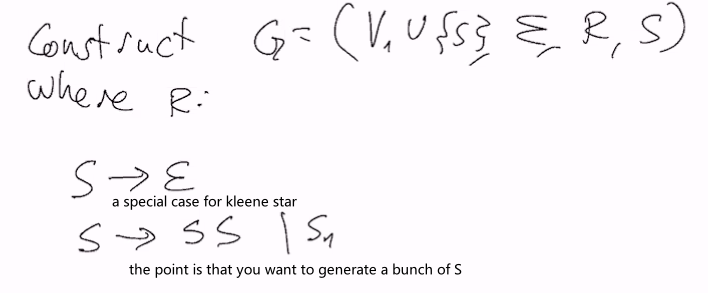 Construct G = (V₁ ∪ {S}, Σ, R, S)
where R:
S → ε
a special case for kleene star
S → SS | S₁
the point is that you want to generate a bunch of S